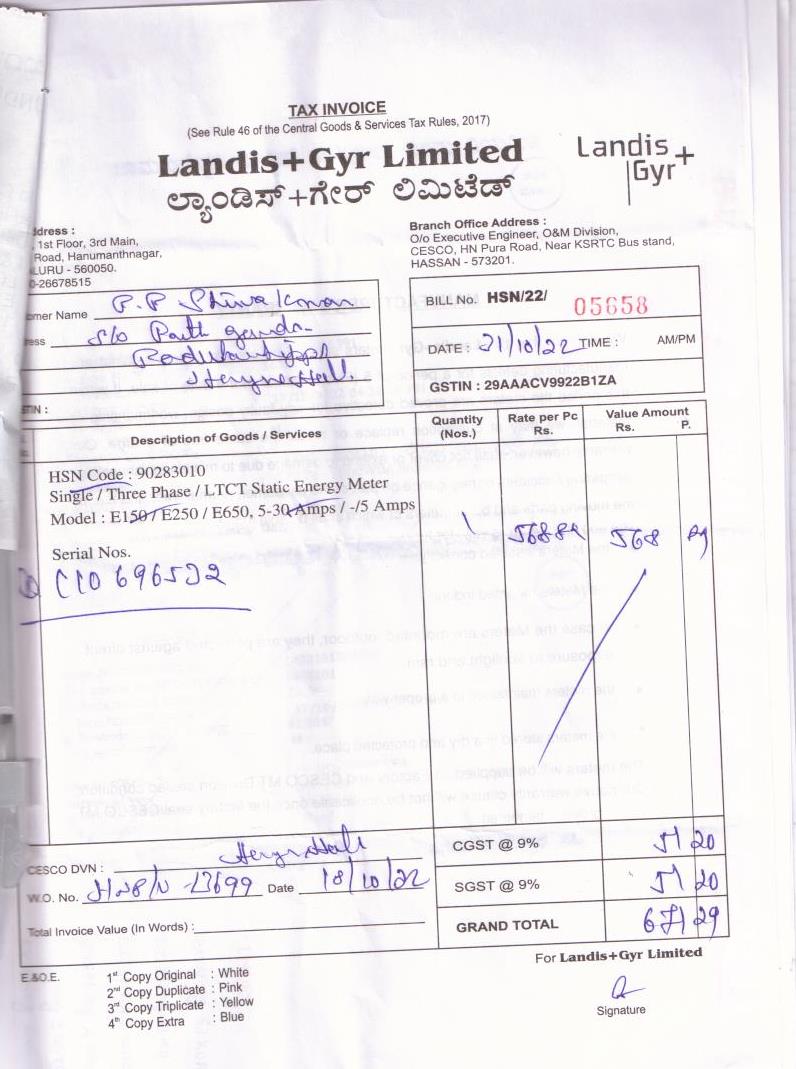 TAX INVOICE
(See Rule 46 of the Central Goods & Services Tax Rules, 2017)
Landis+Gyr Limited
ಲ್ಯಾಂಡಿಸ್+ಗೇರ್ ಲಿಮಿಟೆಡ್
Landis+
Gyr
ddress :
, 1st Floor, 3rd Main,
Road, Hanumanthnagar,
LURU - 560050.
0-26678515
Branch Office Address :
O/o Executive Engineer, O&M Division,
CESCO, HN Pura Road, Near KSRTC Bus stand,
HASSAN - 573201.
omer Name P.P Shiva Kumar
ress S/o
BILL No. HSN/22/ 05658
DATE : 21/10/22 TIME : AM/PM
GSTIN : 29AAACV9922B1ZA
TIN :
Description of Goods / Services
Quantity (Nos.)
Rate per Pc Rs.
Value Amount Rs. P.
HSN Code : 90283010
Single / Three Phase / LTCT Static Energy Meter
Model : E150 / E250 / E650, 5-30 Amps / -/5 Amps
1 568 89
Serial Nos.
CESCO DVN :
CGST @ 9% 51 20
W.O. No. Date 18/10/22
SGST @ 9% 51 20
Total Invoice Value (In Words) :
GRAND TOTAL 671 29
For Landis+Gyr Limited
E.&.O.E.
1st Copy Original : White
2nd Copy Duplicate : Pink
3rd Copy Triplicate : Yellow
4th Copy Extra : Blue
Signature